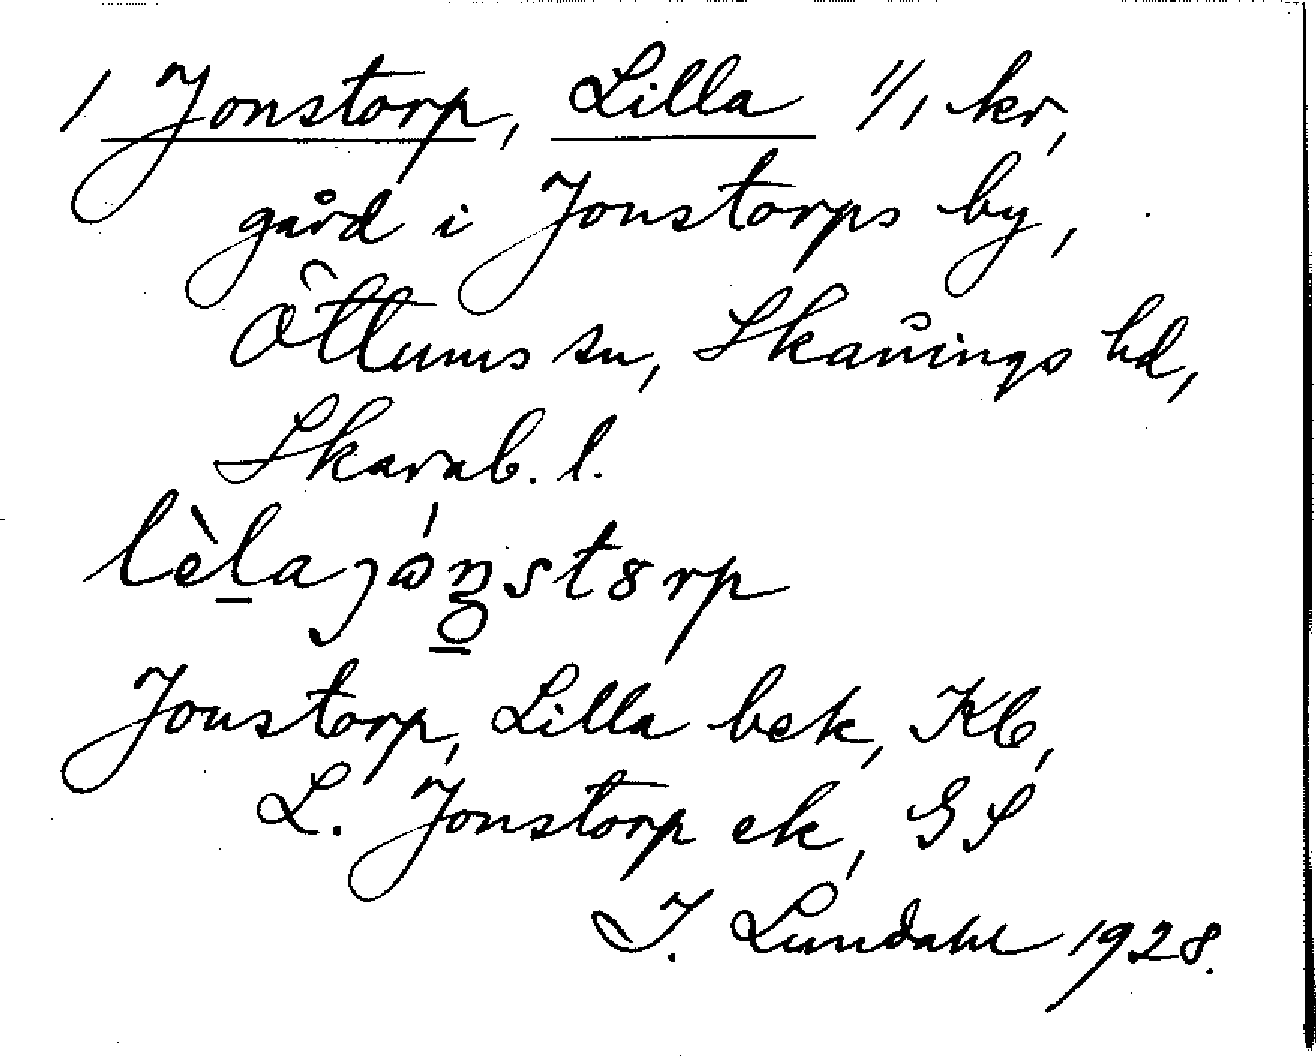 1 Jonstorp, Lilla 1/1 kr,
gård i Jonstorps by,
Öttums sn, Skånings hd,
Skarab. l.
lèlajónstorp
Jonstorp, Lilla bek, Kb,
L. Jonstorp ek, GS
I. Lundahl 1928.